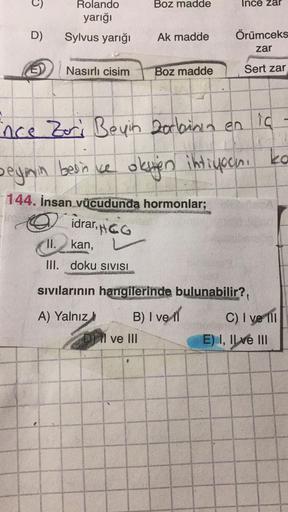 C) Rolando yarığı Boz madde İnce zar
D) Sylvus yarığı Ak madde Örümceks zar
E) Nasırlı cisim Boz madde Sert zar
ince Zar: Beyin Zarlarının en iç
beynin besin ve oksijen ihtiyacını
144. İnsan vücudunda hormonlar;
I. idrar, HCG
II. kan,
III. doku sıvısı
sıvılarının hangilerinde bulunabilir?
A) Yalnız I B) I ve II C) I ve III
D) II ve III E) I, II ve III